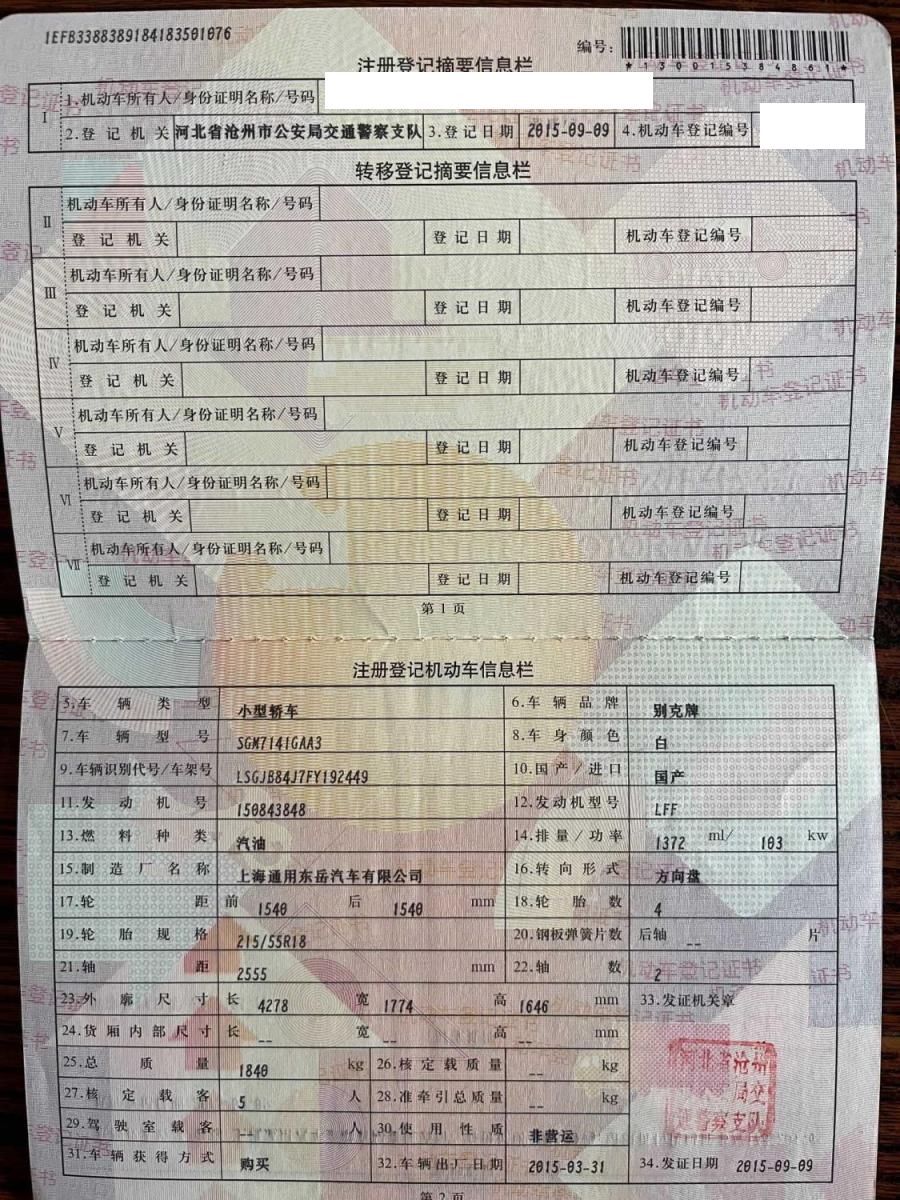 1EFB3388389184183501076
编号:
*130015384861*
注册登记摘要信息栏
I
1.机动车所有人/身份证明名称/号码
2.登记机关 河北省沧州市公安局交通警察支队 3.登记日期 2015-09-09 4.机动车登记编号
转移登记摘要信息栏
II
机动车所有人/身份证明名称/号码
登记机关 登记日期 机动车登记编号
III
机动车所有人/身份证明名称/号码
登记机关 登记日期 机动车登记编号
IV
机动车所有人/身份证明名称/号码
登记机关 登记日期 机动车登记编号
V
机动车所有人/身份证明名称/号码
登记机关 登记日期 机动车登记编号
VI
机动车所有人/身份证明名称/号码
登记机关 登记日期 机动车登记编号
VII
机动车所有人/身份证明名称/号码
登记机关 登记日期 机动车登记编号
第1页
注册登记机动车信息栏
5.车辆类型 小型轿车 6.车辆品牌 别克牌
7.车辆型号 SGM7141GAA3 8.车身颜色 白
9.车辆识别代号/车架号 LSGJB84J7FY192449 10.国产/进口 国产
11.发动机号 150843848 12.发动机型号 LFF
13.燃料种类 汽油 14.排量/功率 1372 ml/ 103 kw
15.制造厂名称 上海通用东岳汽车有限公司 16.转向形式 方向盘
17.轮距 前 1540 后 1540 mm 18.轮胎数 4
19.轮胎规格 215/55R18 20.钢板弹簧片数 后轴 -- 片
21.轴距 2555 mm 22.轴数 2
23.外廓尺寸 长 4278 宽 1774 高 1646 mm 33.发证机关章
24.货厢内部尺寸 长 -- 宽 -- 高 -- mm
25.总质量 1840 kg 26.核定载质量 -- kg
27.核定载客 5 人 28.准牵引总质量 -- kg
29.驾驶室载客 -- 人 30.使用性质 非营运
31.车辆获得方式 购买 32.车辆出厂日期 2015-03-31 34.发证日期 2015-09-09
河北省沧州
局交
通警察支队
第2页